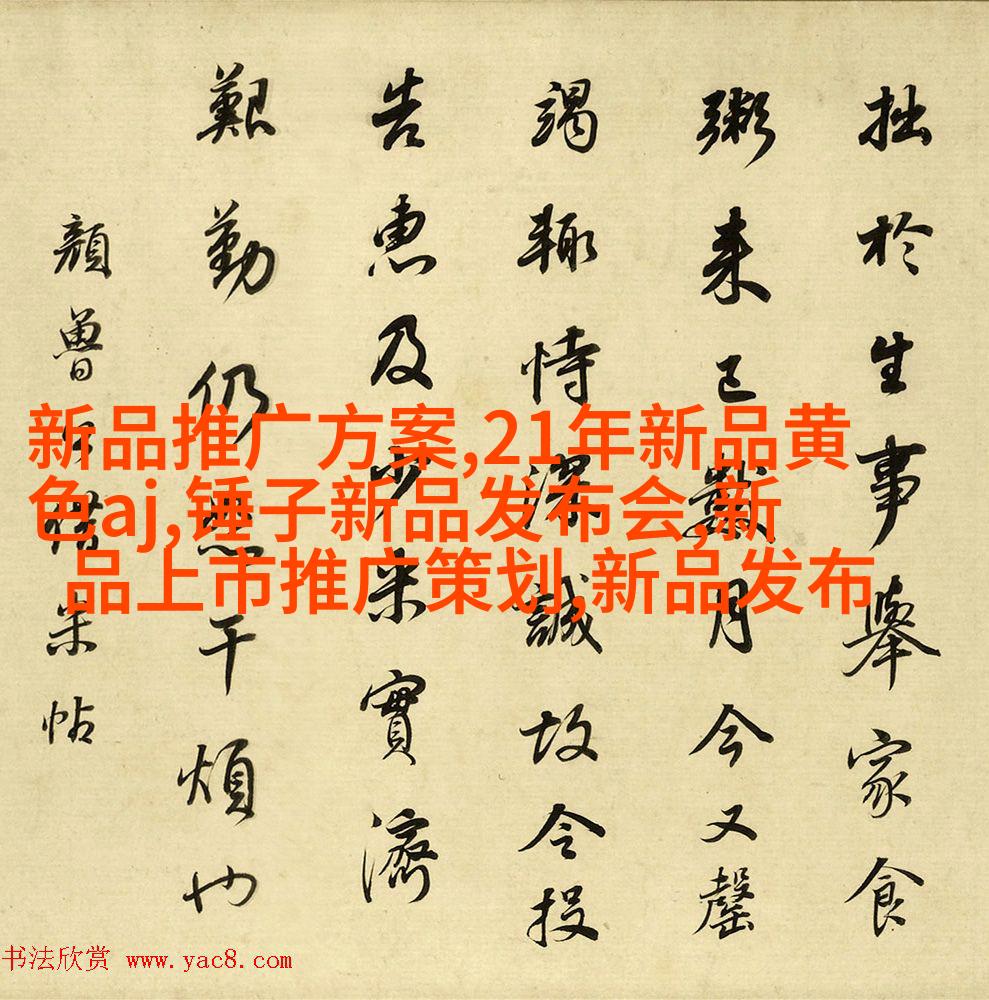 拙於生事舉家食
粥来已數月今又罄
竭輙恃深誠故令投
告惠及少米實濟
艱勤仍恕干煩也
顔魯公借米帖
新品推广方案,21年新品黄
色aj,锤子新品发布会,新
品上市推广策划,新品发布
书法欣赏 www.yac8.com